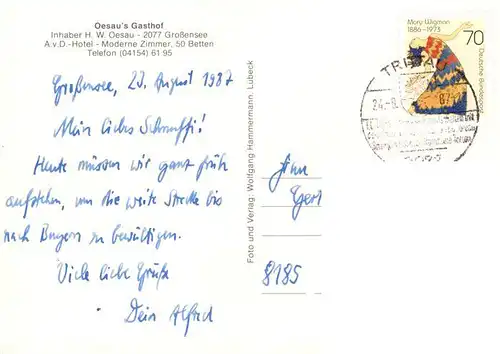 Oesau's Gasthof
Inhaber H. W. Oesau - 2077 Großensee
A.v.D.-Hotel - Moderne Zimmer, 50 Betten
Telefon (04154) 61 95
Großensee, 23. August 1987
Mein liebes Schnuffi!
Heute müssen wir ganz früh
aufstehen, um die weite Strecke bis
nach Bayern zu bewältigen.
Viele liebe Grüße
Dein Alfred
Foto und Verlag: Wolfgang Hammermann, Lübeck
Mary Wigman
1886-1973
70
Deutsche Bundespost
TRITTAU
24.-8.
87-
8185